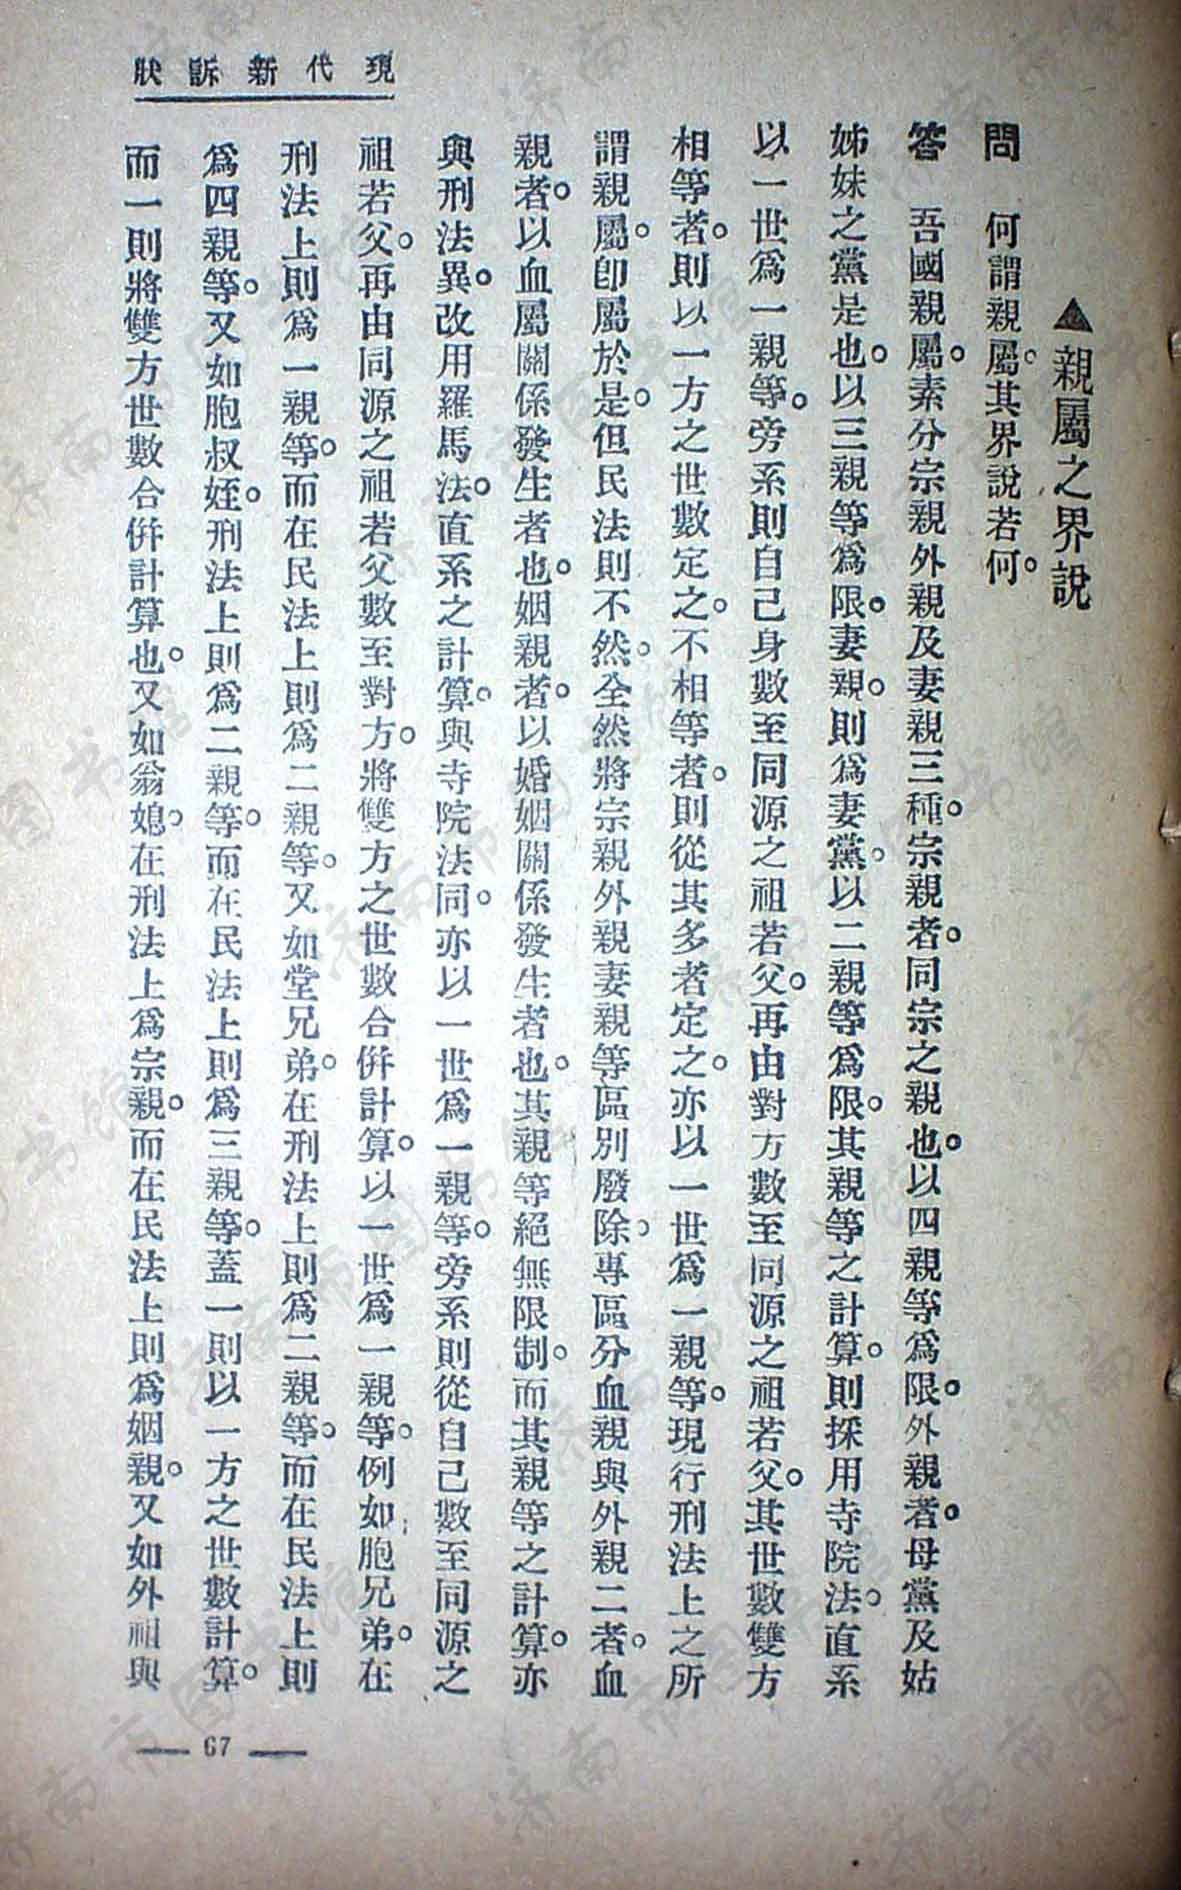 現代新訴狀
▲親屬之界說
問　何謂親屬。其界說若何。
答　吾國親屬。素分宗親外親及妻親三種。宗親者。同宗之親也。以四親等爲限。外親者。母黨及姑
姊妹之黨是也。以三親等爲限。妻親。則爲妻黨。以二親等爲限。其親等之計算。則採用寺院法。直系
以一世爲一親等。旁系則自己身數至同源之祖若父。再由對方數至同源之祖若父。其世數雙方
相等者。則以一方之世數定之。不相等者。則從其多者定之。亦以一世爲一親等。現行刑法上之所
謂親屬。卽屬於是。但民法則不然。全然將宗親外親妻親等區別廢除。專區分血親與外親二者。血
親者。以血屬關係發生者也。姻親者。以婚姻關係發生者也。其親等絕無限制。而其親等之計算。亦
與刑法異。改用羅馬法。直系之計算。與寺院法同。亦以一世爲一親等。旁系則從自己數至同源之
祖若父。再由同源之祖若父數至對方。將雙方之世數合併計算。以一世爲一親等。例如胞兄弟。在
刑法上則爲一親等。而在民法上則爲二親等。又如堂兄弟。在刑法上則爲二親等。而在民法上則
爲四親等。又如胞叔姪。刑法上則爲二親等。而在民法上則爲三親等。蓋一則以一方之世數計算。
而一則將雙方世數合併計算也。又如翁媳。在刑法上爲宗親。而在民法上則爲姻親。又如外祖與
— 67 —
济南市图书馆